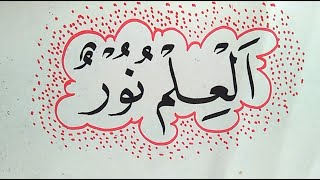 اَلْعِلْمُ نُوْرٌ